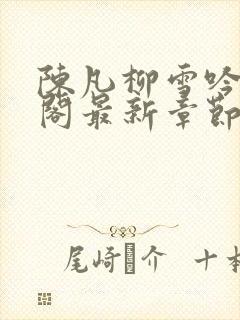 陳凡柳雪吟
閣最新章節
尾崎 介 十本